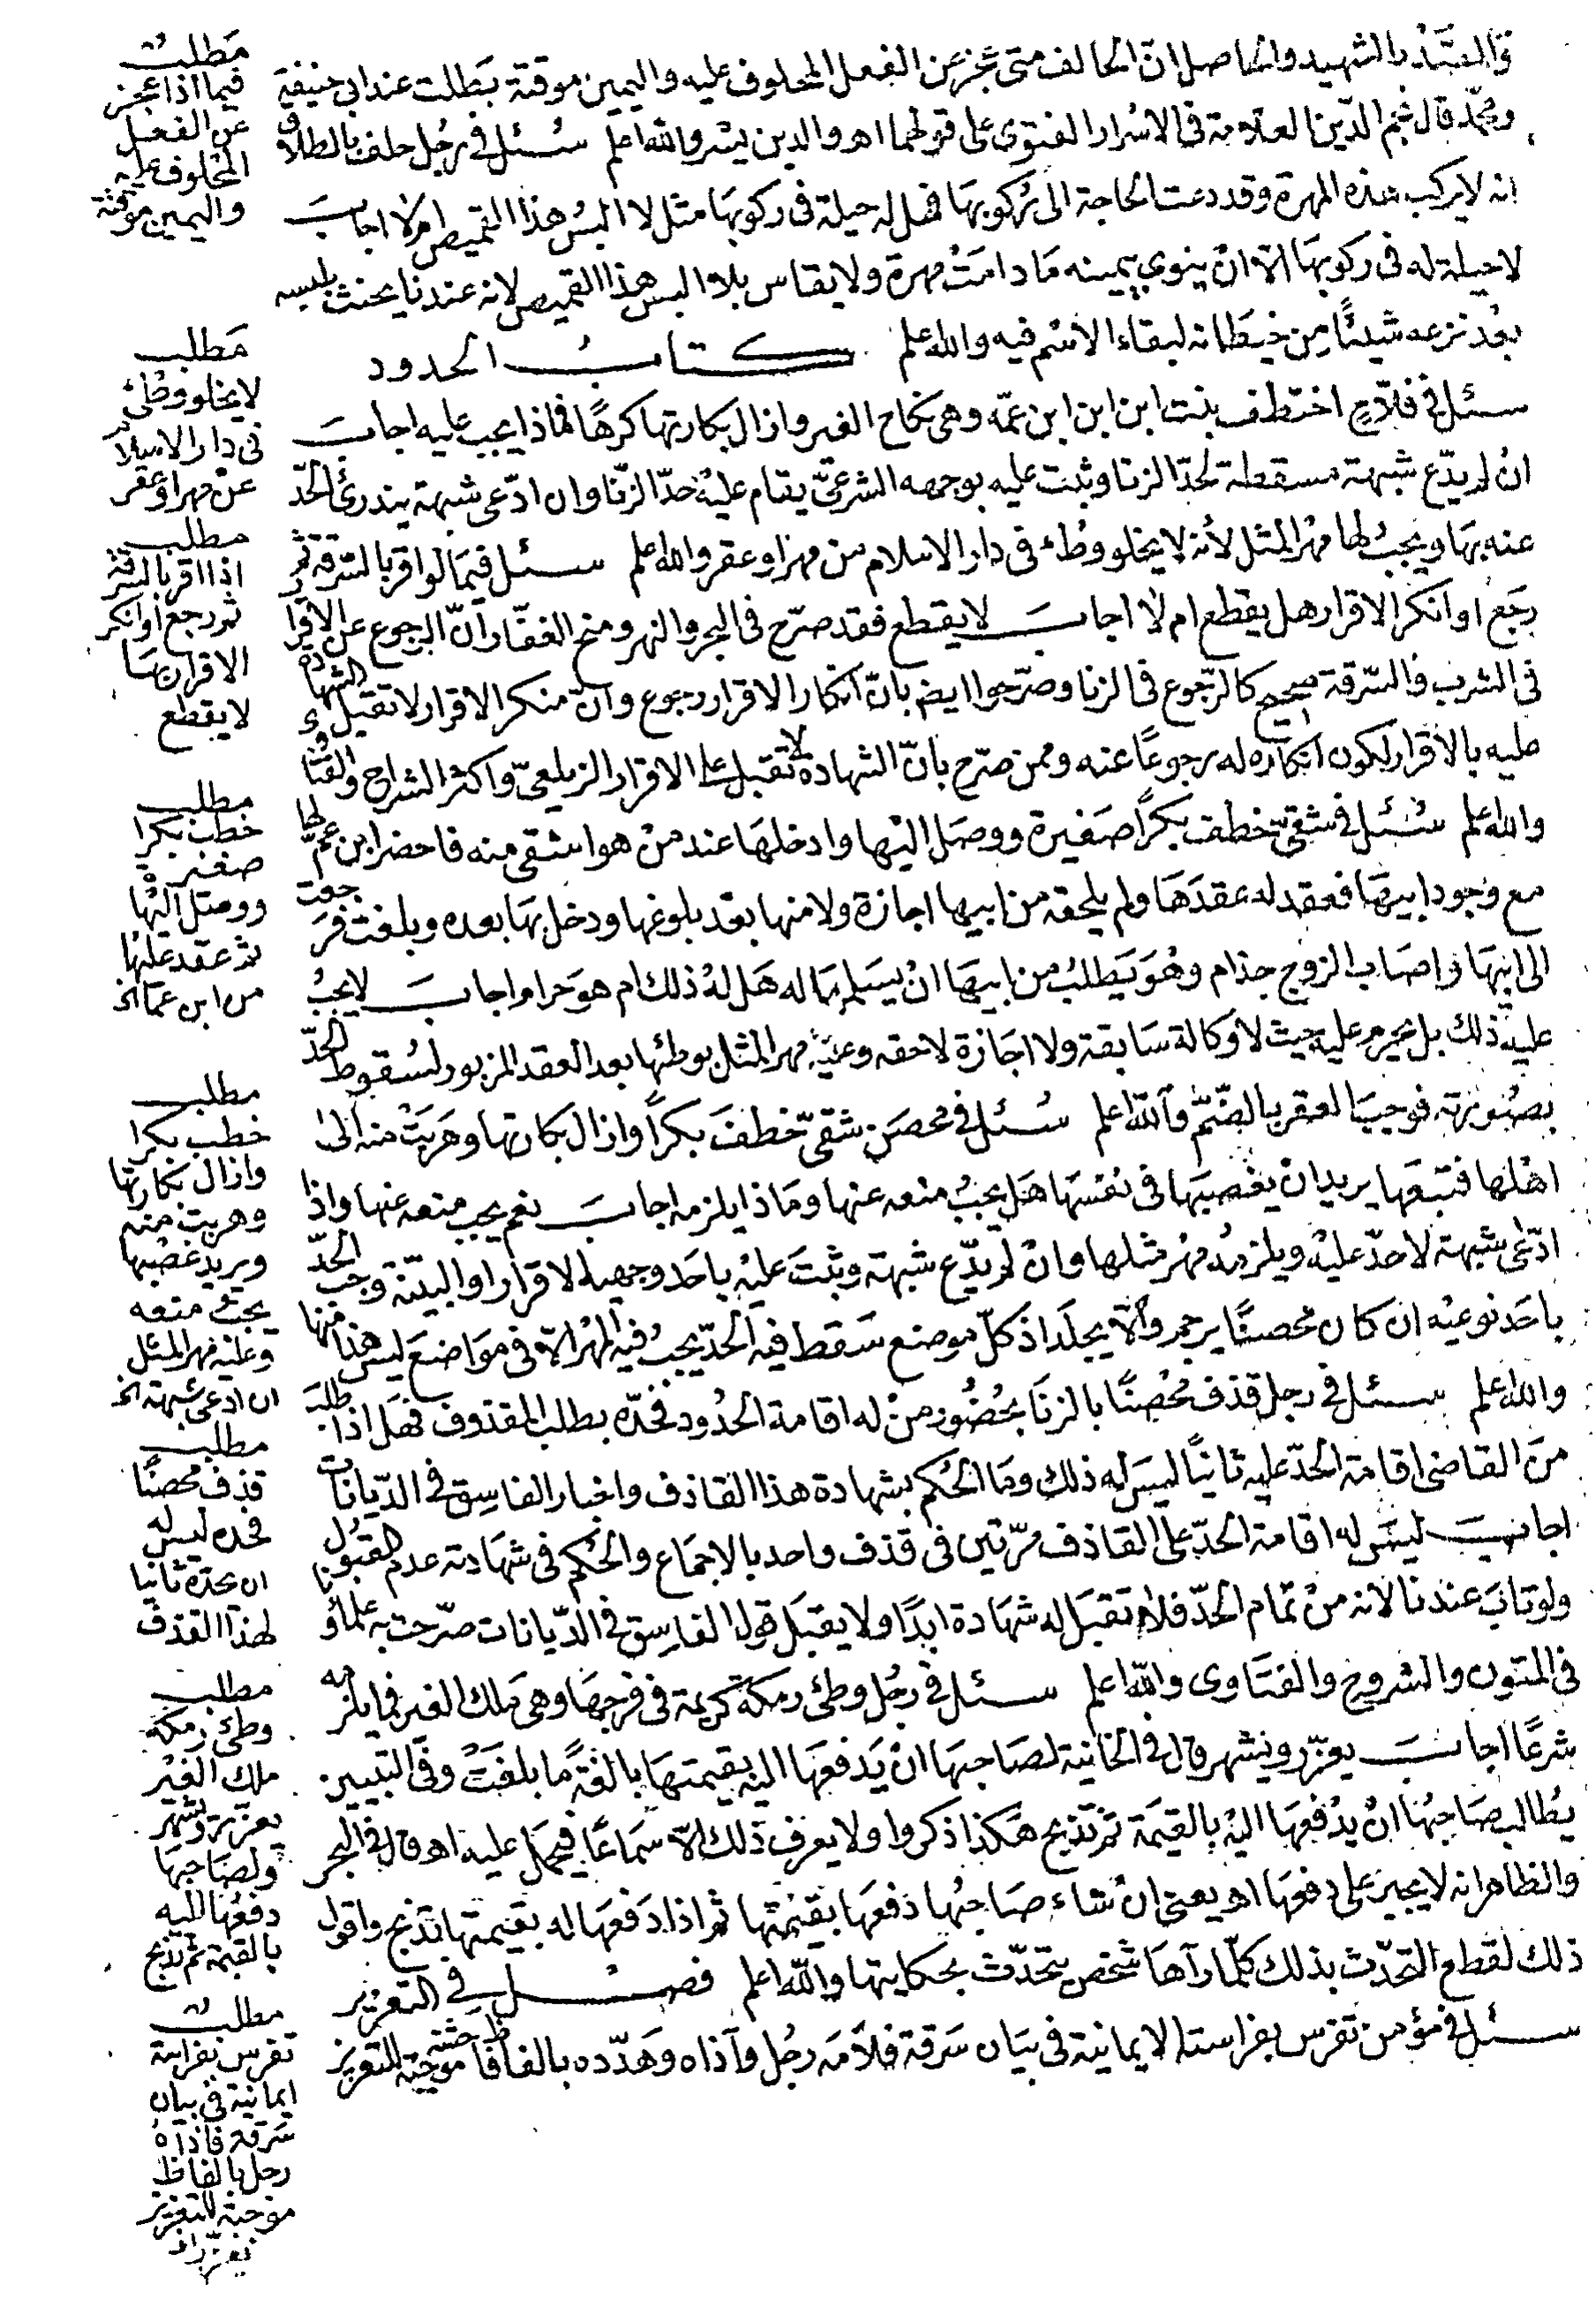 والصدر الشهيد والحاصل ان الحالف متى عجز عن الفعل المحلوف عليه واليمين موقتة بطلت عند ابي حنيفة
ومحمد قال نجم الدين العلامة في الاسرار الفتوى على قولهما اهـ والدين يسر والله اعلم سئل في رجل حلف بالطلاق
انه لا يركب هذه المهرة وقد دعت الحاجة الى ركوبها فهل له حيلة في ركوبها مثل لا البس هذا القميص ام لا اجاب
لا حيلة له في ركوبها الا ان ينوي بيمينه ما دامت مهرة ولا يقاس بلا البس هذا القميص لانه عندنا يحنث بلبسه
بعد نزعه شيئا من خيطانه لبقاء الاسم فيه والله اعلم كتاب الحدود
سئل في فلاح اختطف بنت ابن ابن ابن عمه وهي نكاح الغير وازال بكارتها كرها فماذا يجب عليه اجاب
ان لم يدّع شبهة مسقطة لحد الزنا وثبت عليه بوجهه الشرعي يقام عليه حد الزنا وان ادعى شبهة يندرئ الحد
عنه بها ويجب لها مهر المثل لأنه لا يخلو وطء في دار الاسلام من مهر او عقر والله اعلم سئل فيما لو اقر بالسرقة ثم
رجع او انكر الاقرار هل يقطع ام لا اجاب لا يقطع فقد صرح في البحر والنهر ومنح الغفار ان الرجوع عن الاقرار
في الشرب والسرقة صحيح كالرجوع في الزنا وصرحوا ايضا بان انكار الاقرار رجوع وان منكر الاقرار لا تقبل الشهادة
عليه بالاقرار لكون انكاره له رجوعا عنه وممن صرح بان الشهادة لا تقبل على الاقرار الزيلعي واكثر الشراح والفتاوى
والله اعلم سئل في شقي خطف بكرا صغيرة ووصل اليها وادخلها عند من هو اشقى منه فاحضر ابن عم لها
مع وجود ابيها فعقد له عقدها ولم يلحقه من ابيها اجازة ولا منها بعد بلوغها ودخل بها بعده وبلغت فرجعت
الى ابيها واصاب الزوج جذام وهو يطلب من ابيها ان يسلمها له هل له ذلك ام هو حرام اجاب لا يجب
عليه ذلك بل يحرم عليه حيث لا وكالة سابقة ولا اجازة لاحقه وعليه مهر المثل بوطئها بعد العقد المزبور لسقوط الحد
بصورته فوجب العقر بالضم والله اعلم سئل في محصن شقي خطف بكرا وازال بكارتها وهربت منه الى
اهلها فتبعها يريد ان يغصبها في نفسها هل يجب منعه عنها وماذا يلزمه اجاب نعم يجب منعه عنها واذا
ادعى شبهة لا حد عليه ويلزمه مهر مثلها وان لم يدع شبهة وثبت عليه باحد وجهيه الاقرار او البينة وجب الحد
باحد نوعيه ان كان محصنا يرجم والا يجلد اذ كل موضع سقط فيه الحد يجب فيه المهر الا في مواضع ليس هذا منها
والله اعلم سئل في رجل قذف محصنا بالزنا بحضور من له اقامة الحدود فحده بطلب المقذوف فهل اذا طلب
من القاضي اقامة الحد عليه ثانيا ليس له ذلك وما الحكم بشهادة هذا القاذف واخبار الفاسق في الديانات
اجاب ليس له اقامة الحد على القاذف مرتين في قذف واحد بالاجماع والحكم في شهادته عدم القبول
ولو تاب عندنا لانه من تمام الحد فلا تقبل له شهادة ابدا ولا يقبل قول الفاسق في الديانات صرحت به علماؤنا
في المتون والشروح والفتاوى والله اعلم سئل في رجل وطئ رمكة كريمة في فرجها وهي ملك الغير فما يلزمه
شرعا اجاب يعزر ويشهر قال في الخانية لصاحبها ان يدفعها اليه بقيمتها بالغة ما بلغت وفي التبيين
يطالب صاحبها ان يدفعها اليه بالقيمة ثم تذبح هكذا ذكروا ولا يعرف ذلك الا سماعا فيحمل عليه اهـ قال في البحر
والظاهر انه لا يجبر على دفعها اهـ يعني ان شاء صاحبها دفعها بقيمتها ثم اذا دفعها له بقيمتها تذبح واقول
ذلك لقطع التحدث بذلك كلما رآها شخص يتحدث بحكايتها والله اعلم فصل في التعزير
سئل في مؤمن تفرس بفراسته الايمانية في بيان سرقة فلامه رجل وآذاه وهدده بالفاظ خشنة موجبة للتعزير
مطلب
فيما اذا عجز
عن الفعل
المحلوف عليه
واليمين موقتة
مطلب
لا يخلو وطئ
في دار الاسلام
عن مهر او عقر
مطلب
اذا اقر بالسرقة
ثم رجع او انكر
الاقرار بها
لا يقطع
مطلب
خطف بكرا
صغيرة
ووصل اليها
ثم عقد عليها
من ابن عم الخ
مطلب
خطف بكرا
وازال بكارتها
وهربت منه
ويريد غصبها
يجب منعه
وعليه مهر المثل
ان ادعى شبهة الخ
مطلب
قذف محصنا
فحده ليس له
ان يحده ثانيا
لهذا القذف
مطلب
وطئ رمكة
ملك الغير
يعزر ويشهر
ولصاحبها
دفعها اليه
بالقيمة ثم تذبح
مطلب
تفرس بفراسة
ايمانية في بيان
سرقة فآذاه
رجل بالفاظ
موجبة للتعزير